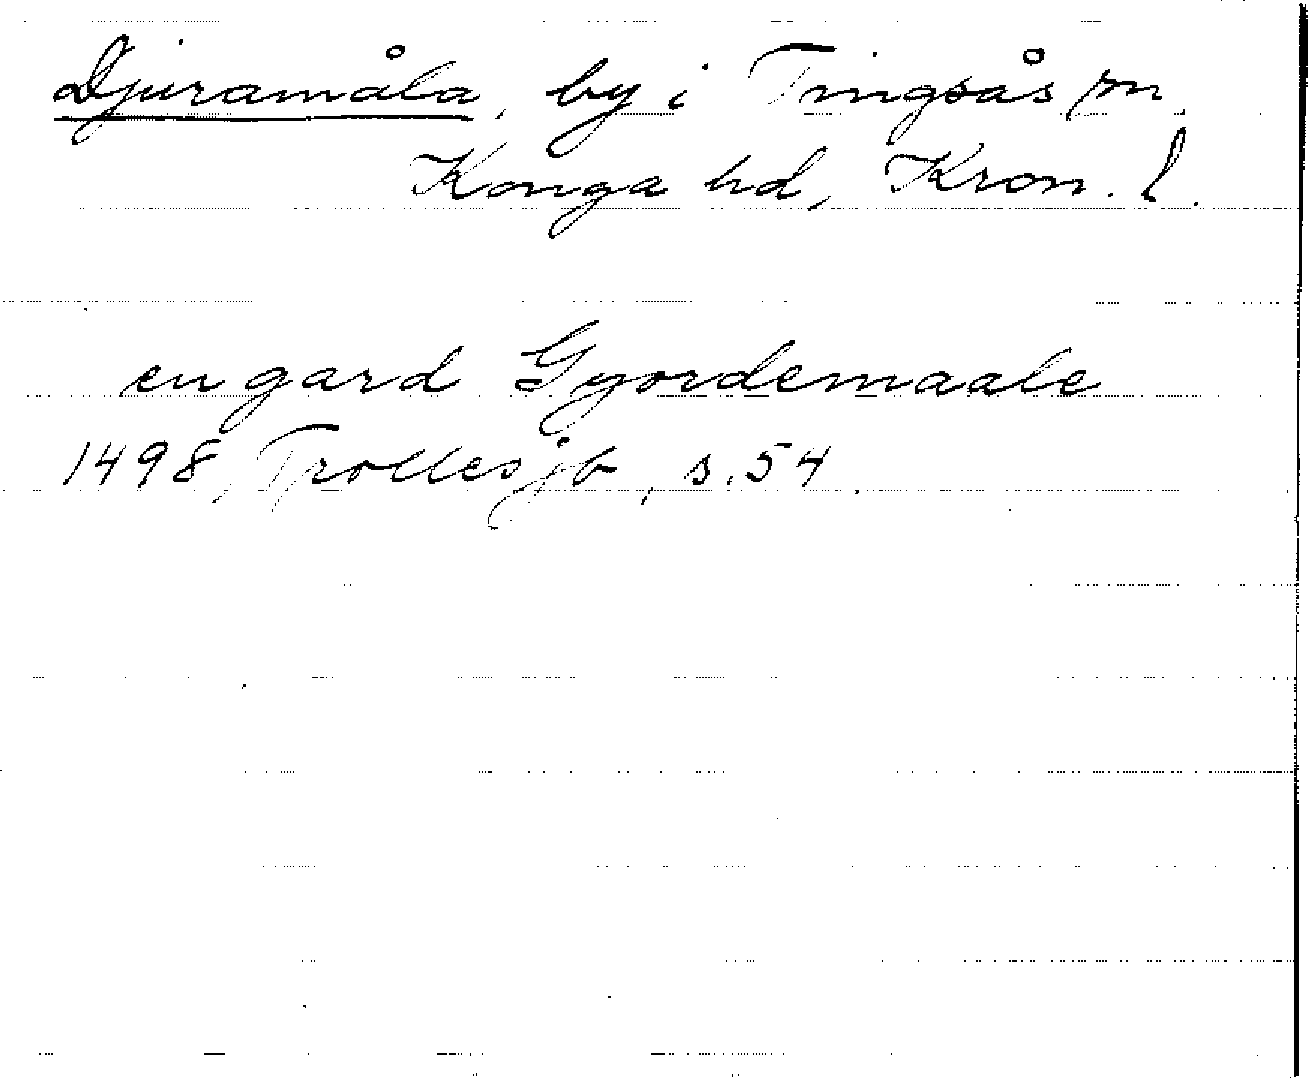 Djuramåla, by i Tingsås sn,
Konga hd, Kron. l.
en gard Gyordemaale
1498, Trollesjb, s. 54.